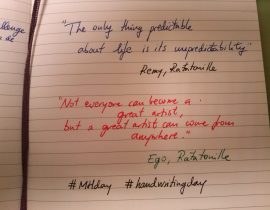 "The only thing predictable
about life is its unpredictability"
Remy, Ratatouille
"Not everyone can become a
great artist,
but a great artist can come from
anywhere."
Ego, Ratatouille
#handwritingday